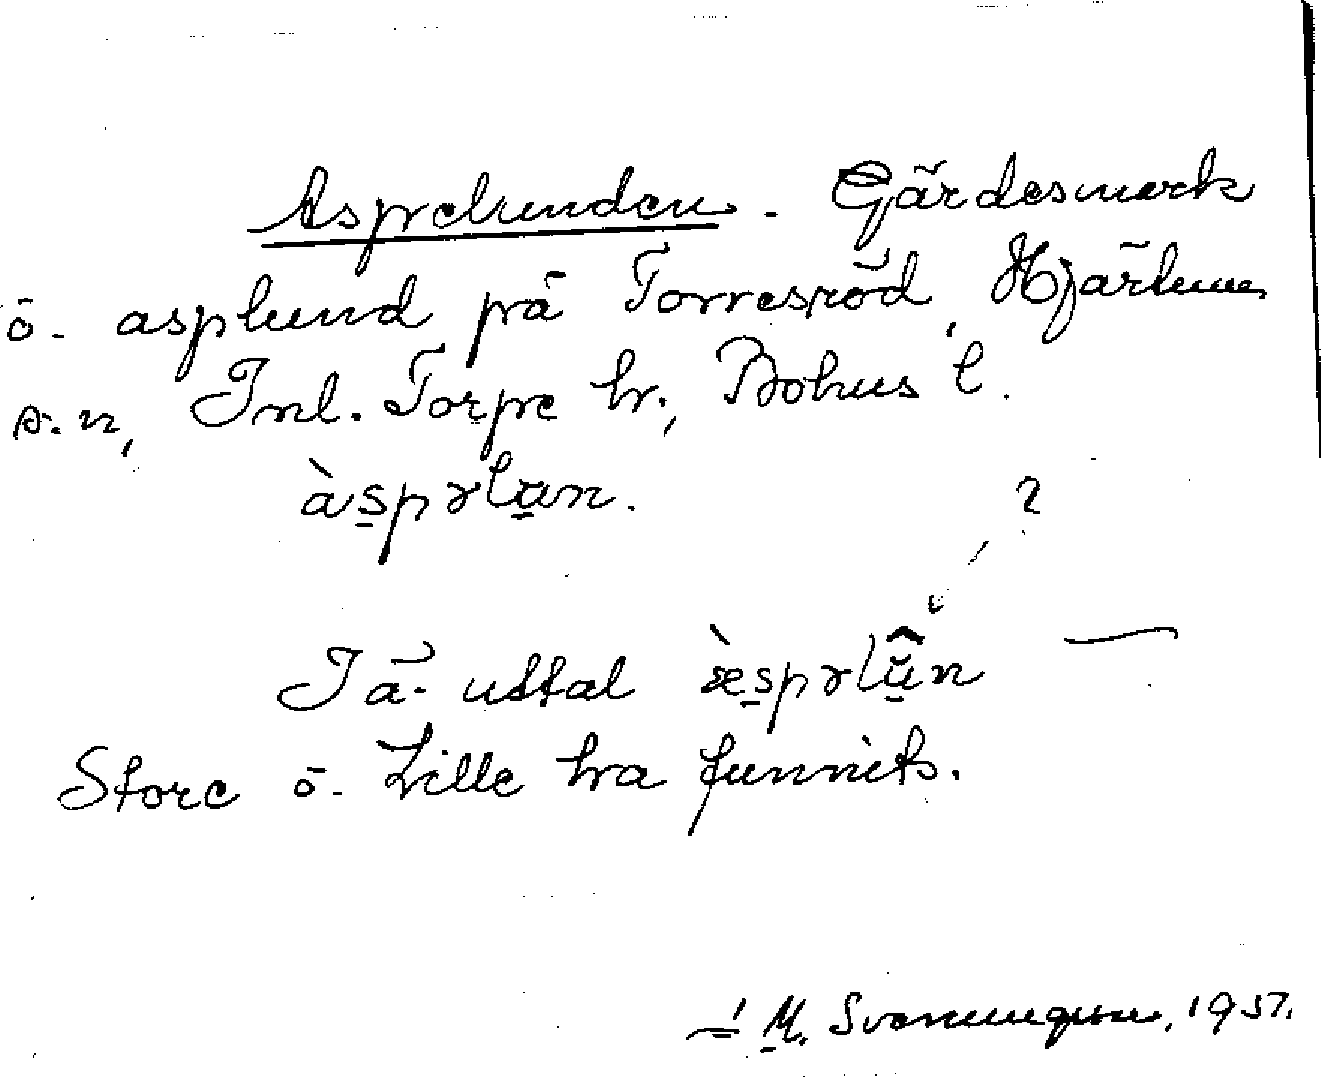 Aspelunden. Gärdesmark
o. asplund på Torresröd, Hjärtums
s:n, Inl. Torpe hr., Bohus l.
àspəlun.
?
I ä. uttal æ̀spəlŭn
Store o. Lille ha funnits.
M. Svenningsson, 1957.